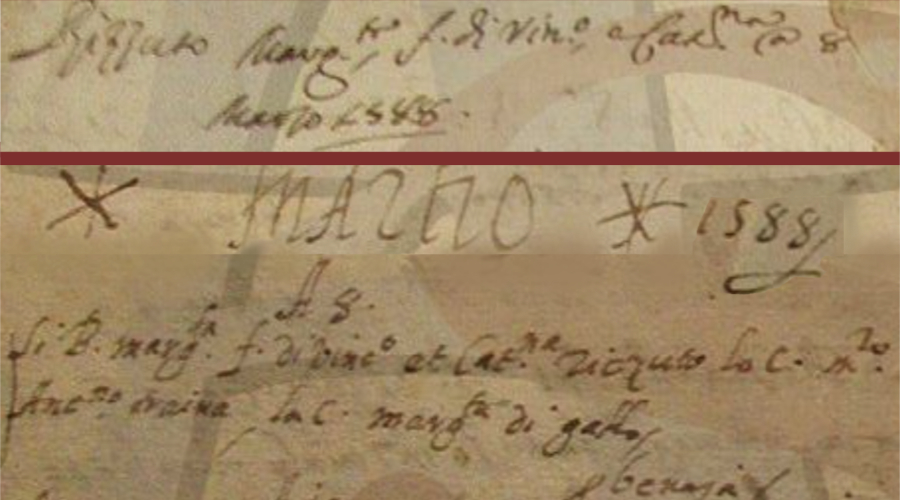 Rizzuto Marg.ta f. di Vin.o e Cat.na a 8
Marzo 1588.
MARTIO 1588
A 8.
Si B. marg.ta f. di Vinc.o et Cat.na rizzuto lo C. m.ro
Anc.no traina la C. marg.ta di gallo